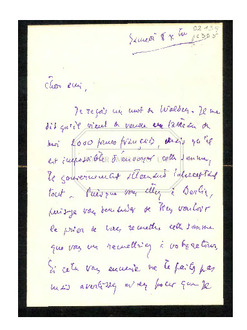 Samedi 8
Cher ami,
Je reçois un mot de Walden. Il me
dit qu'il vient de vendre un tableau de
moi 2000 francs français, mais qu'il
est impossible d'envoyer cette somme,
le gouvernement allemand interceptant
tout. Puisque vous allez à Berlin,
puis-je vous demander de bien vouloir
le prier de vous remettre cette somme
que vous me remettriez à votre retour.
Si cela vous ennuie ne le faites pas
mais avertissez m'en pour que je